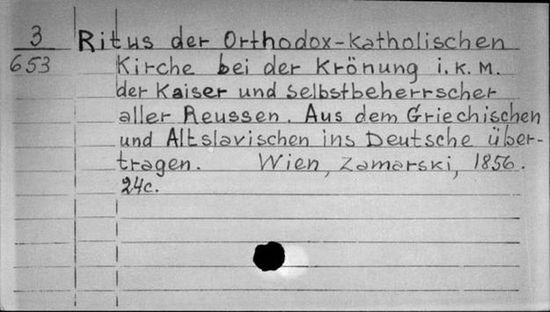 3
653
Ritus der Orthodox-katholischen
Kirche bei der Krönung i.k.M.
der Kaiser und Selbstbeherrscher
aller Reussen. Aus dem Griechischen
und Altslavischen ins Deutsche über-
tragen. Wien, Zamarski, 1856.
24c.